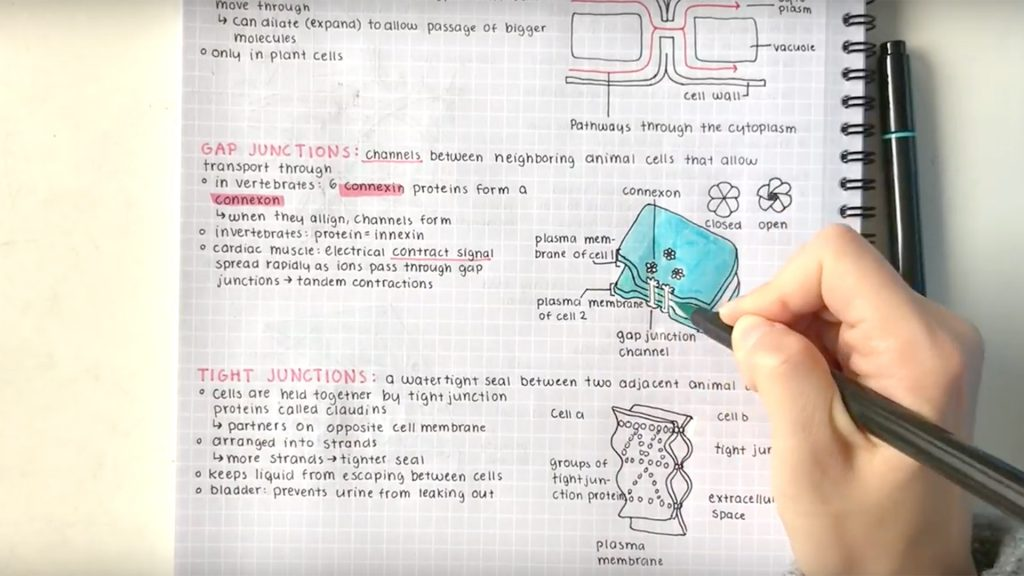 move through
↳ can dilate (expand) to allow passage of bigger
molecules
° only in plant cells
plasm
vacuole
cell wall
Pathways through the cytoplasm
GAP JUNCTIONS: channels between neighboring animal cells that allow
transport through
° in vertebrates: 6 connexin proteins form a
connexon
↳ when they allign, channels form
° invertebrates: protein = innexin
° cardiac muscle: electrical contract signal
spread rapidly as ions pass through gap
junctions → tandem contractions
connexon
closed open
plasma mem-
brane of cell 1
plasma membrane
of cell 2
gap junction
channel
TIGHT JUNCTIONS: a watertight seal between two adjacent animal
° cells are held together by tight junction
proteins called claudins
↳ partners on opposite cell membrane
° arranged into strands
↳ more strands → tighter seal
° keeps liquid from escaping between cells
° bladder: prevents urine from leaking out
cell a
cell b
tight jun
groups of
tight jun-
ction protein
extracellu
space
plasma
membrane